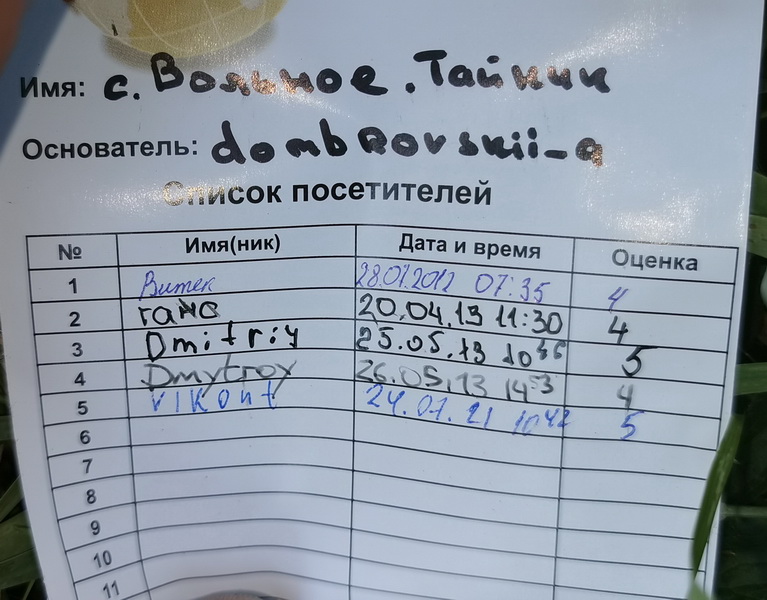 Имя: с. Вольное. Тайник
Основатель: dombrovskii_a
Список посетителей
№ Имя(ник) Дата и время Оценка
1 Витек 28.01.2012 07:35 4
2 ганс 20.04.13 11:30 4
3 Dmitriy 25.05.13 10 5
4 Dmytroy 26.05.13 14:53 4
5 vikont 24.07.21 10 42 5
6
7
8
9
10
11